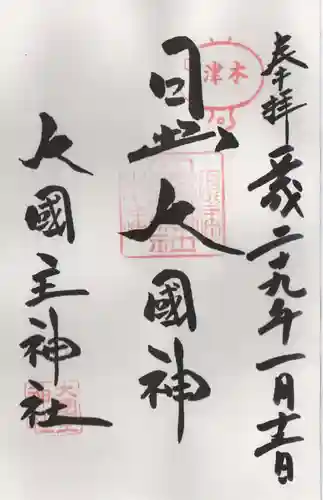 奉拝 平成二十九年一月日
木津
日出大國神
大國主神社